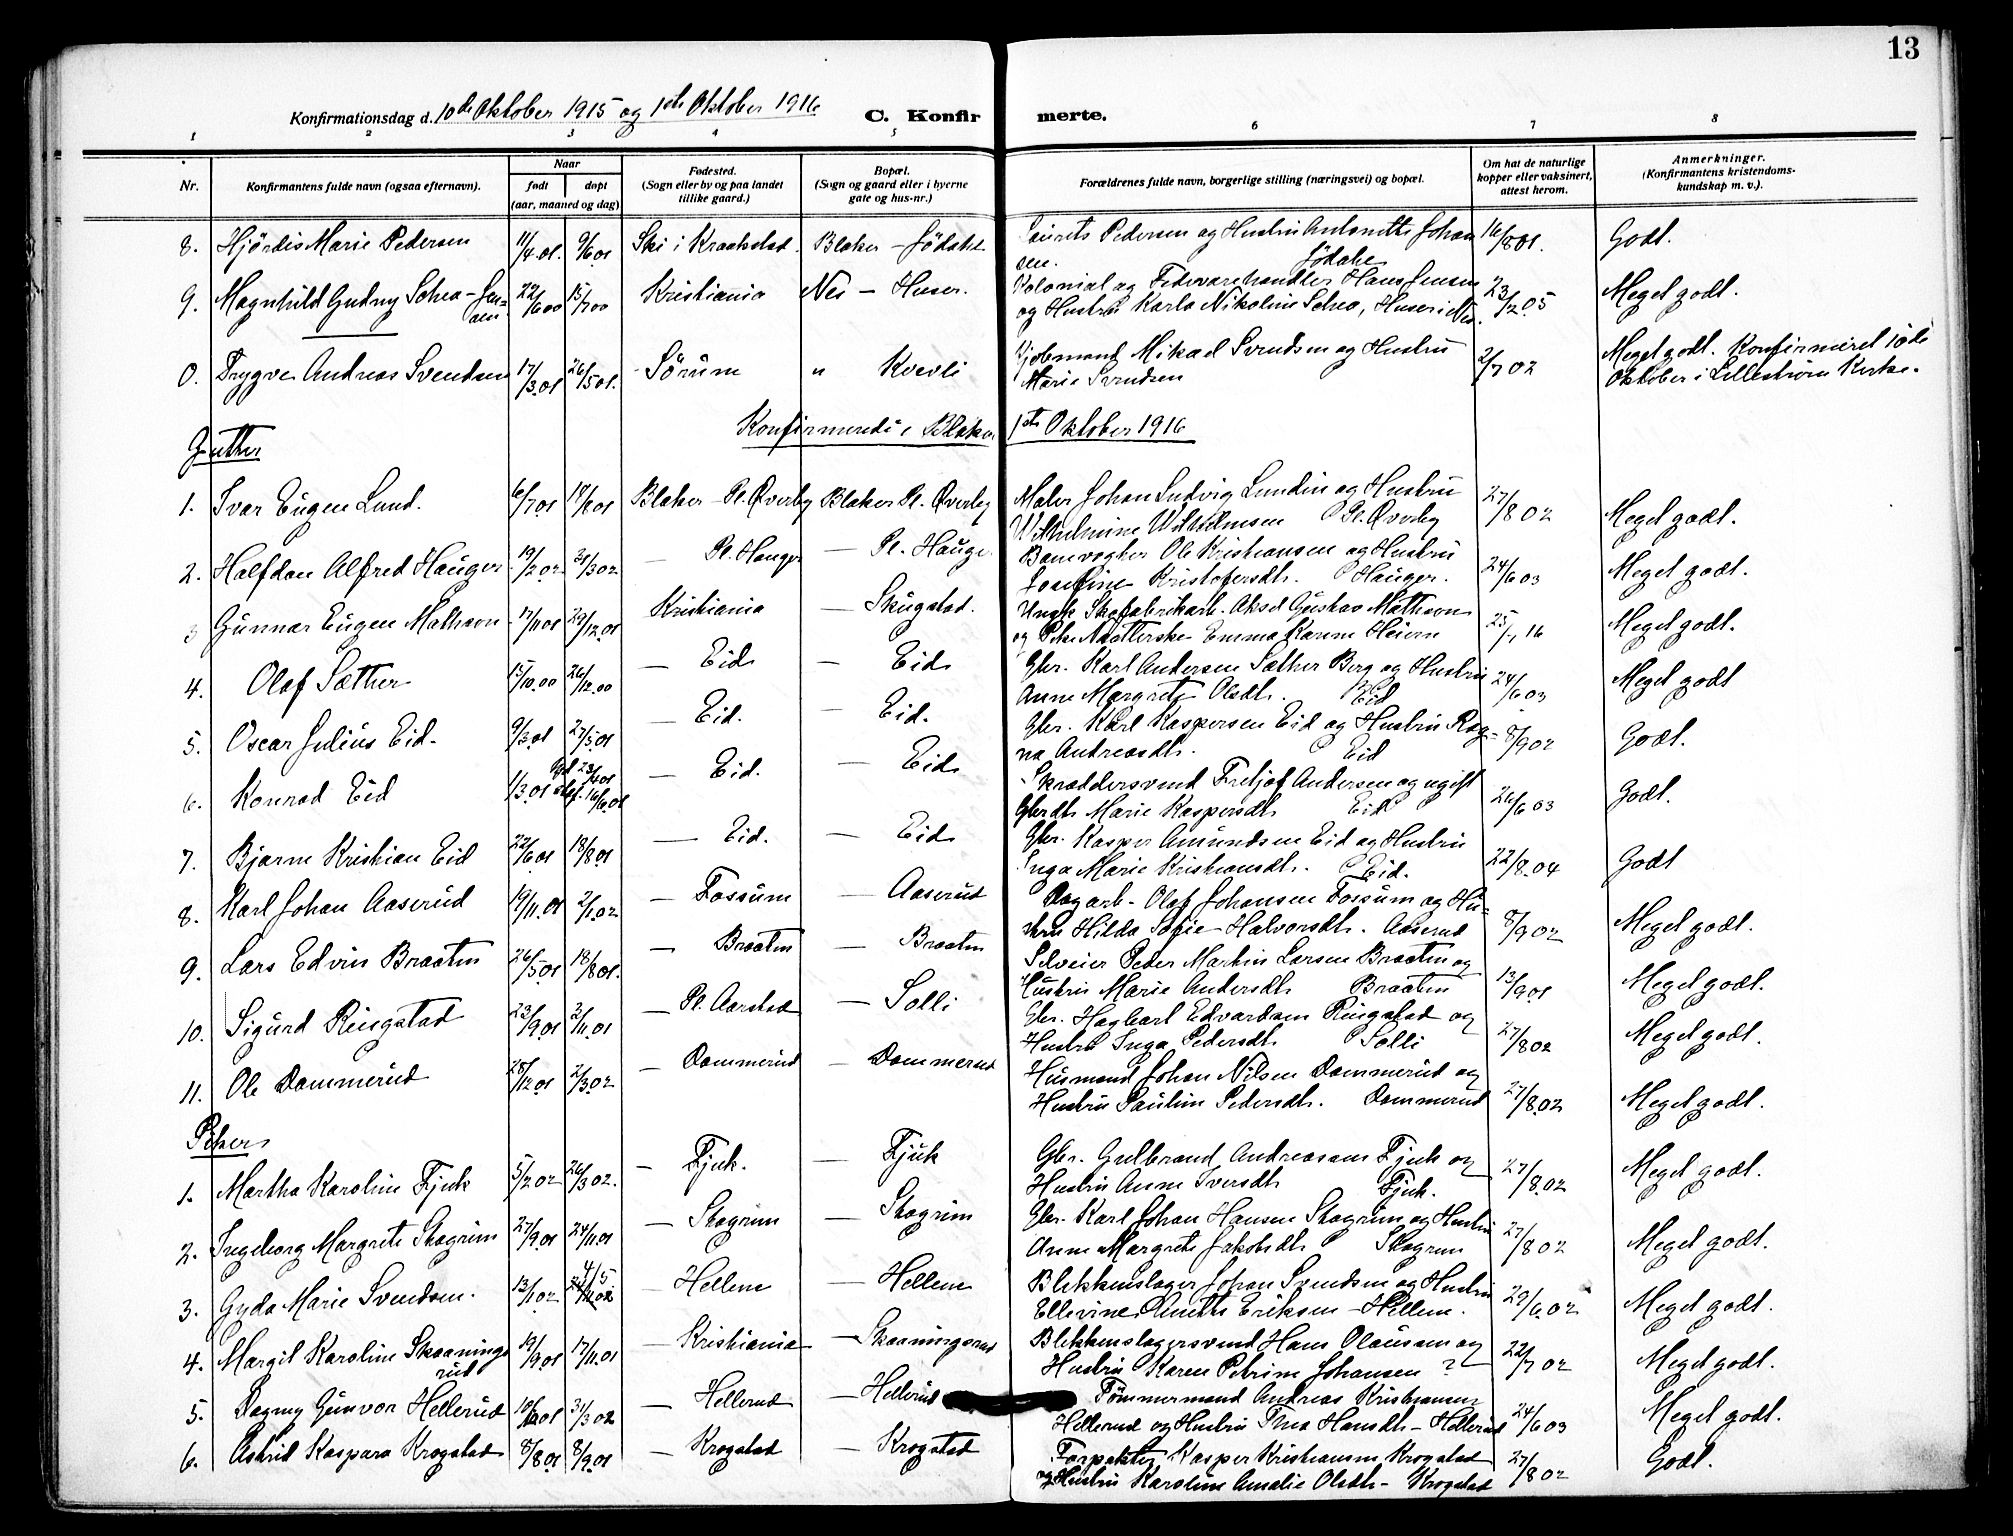 13
Konfirmationsdag d. 10de Oktober 1915 og 1ste Oktober 1916 C. Konfirmerte.
1 2 3 4 5 6 7 8
Nr. Konfirmantens fulde navn (ogsaa efternavn). Naar født døpt (aar, maaned og dag) Fødested. (Sogn eller by og paa landet tillike gaard.) Bopæl. (Sogn og gaard eller i byerne gate og hus-nr.) Forældrenes fulde navn, borgerlige stilling (næringsvei) og bopæl. Om hat de naturlige kopper eller vaksinert, attest herom. Anmerkninger. (Konfirmantens kristendoms-kundskap m. v.).
8. Hjördis Marie Pedersen 11/4.01. 9/6 01 Ski i Kraakstad. Blaker – Födahl Laurits Pedersen og Hustru Antonette Johan 16/8 01. Godt.
sen. Födahe
9. Magnhild Gudny Scheo – Jen- 22/6 00 15/7 00 Kristiania Nes – Huser. Kolonial og Fedevarehandler Hans Jensen 23/2 05 Meget godt.
sen og Hustru Karla Nikoline Scheo, Huser i Nes.
0. Trygve Andreas Svendsen 17/3.01 26/5 01. Sörum " Kvevli Hjobmand Mikael Svendsen og Hustru 2/7 02 Meget godt. Konfirmeret 10de
Marie Svendsen Oktober i Lilleström Kirke.
Konfirmerede i Blaker 1ste Oktober 1916
Gutter
1. Ivar Eugen Lund. 6/7 01 18/8 01 Blaker – Pl. Øverby Blaker Pl. Øverby Maler Johan Ludvig Lundin og Hustru 27/8 02 Meget godt.
Vilhelmine Vilhelmsen Pl. Øverby
2. Halfdan Alfred Hauger 19/2 02 31/3 02 — Pl. Hauger — Pl. Hauge. Banevogter Ole Kristiansen og Hustru 24/6 03 Meget godt.
Josefine Kristofersdtr. Hauger.
3 Gunnar Eugen Mathson 17/11 01 29/12.01 Kristiania — Skugstad. Ungk. Skofabrikarb. Aksel Gustav Mathson 25/7 16 Meget godt.
og Pike Emma Karine Heiern
4. Olaf Sæther 15/10.00 26/12.00 — Eid — Eid Gbr. Karl Andersen Sæther Berg og Hustru 24/6 03 Meget godt
Anne Margrete Olsdtr. Eid
5. Oscar Julius Eid. 9/3.01 27/5 01 — Eid. — Eid. Gbr. Karl Kaspersen Eid og Hustru Rag- 8/9 02 Godt.
na Andreasdtr. Eid
6. Konrad Eid 1/3 01 23/4 01 16/6 01 — Eid. — Eid Skræddersvend Fritjof Andersen og ugift 26/6 03 Godt.
Gbrdtr. Marie Kaspersdtr. Eid
7. Bjarne Kristian Eid 22/6 01 18/8 01 — Eid. — Eid Gbr. Kasper Amundsen Eid og Hustru 22/8.04 Godt
Inga Marie Kristiansdtr. Eid.
8. Karl Johan Aaserud 19/11.01 2/1.02 — Fossum — Aaserud Dagarb. Olaf Johansen Fossum og Hu- 8/9 02 Meget godt.
stru Hilda Sofie Halvorsdtr. Aaserud
9. Lars Edvin Braaten 26/5 01 18/8 01. — Braaten — Braaten Selveier Peder Martin Larsen Braaten og 13/9 01 Meget godt.
Hustru Marie Andersdtr. Braaten
10. Sigurd Ringstad 23/9 01 3/11.01 — Pl. Aarstad — Solli Gbr. Hagbart Edvardsen Ringstad og 27/8 02 Meget godt.
Hustru Inga Pedersdtr. Solli
11. Ole Dammerud 28/12 01 2/3 02 — Dammerud — Dammerud Husmand Johan Nilsen Dammerud og 27/8.02 Meget godt.
Hustru Pauline Pedersdtr. Dammerud
Piker
1. Martha Karoline Fjuk 5/2 02 26/3 02. — Fjuk. — Fjuk Gbr. Gulbrand Andreasen Fjuk og 27/8.02 Meget godt.
Hustru Anne Iversdtr. Fjuk.
2. Ingeborg Margrete Skogrim 27/9 01 24/11 01 — Skogrim — Skogrim Gbr. Karl Johan Hansen Skogrim og Hustru 27/8 02 Meget godt.
Anne Margrete Jakobsdtr. Skogrim
3. Gyda Marie Svendsen. 13/1 02 4/5 — Hellem — Hellem Blikkenslager Johan Svendsen og Hustru 29/6.02 Meget godt.
Ellevine Anette Eriksen – Hellem.
4. Margit Karoline Skaanings- 19/9 01 17/11.01 — Kristiania — Skaaningsrud Blikkenslagersvend Hans Olausen og 22/7 02 Meget godt.
rud Hustru Karen Petrine Johansen ?
5. Dagny Gunvor Hellerud 31/3 02 — Hellerud — Hellerud Tömmermand Andreas Kristiansen 24/6 03 Meget godt.
Hellerud og Hustru Thea Hansdtr – Hellerud
6. Astrid Kaspara Krogstad 8/8 01 8/9 01 — Krogstad — Krogstad Forpakter Kasper Kristiansen Krogstad 27/8 02 Godt.
og Hustru Karoline Amalie Olsdtr – Krogstad